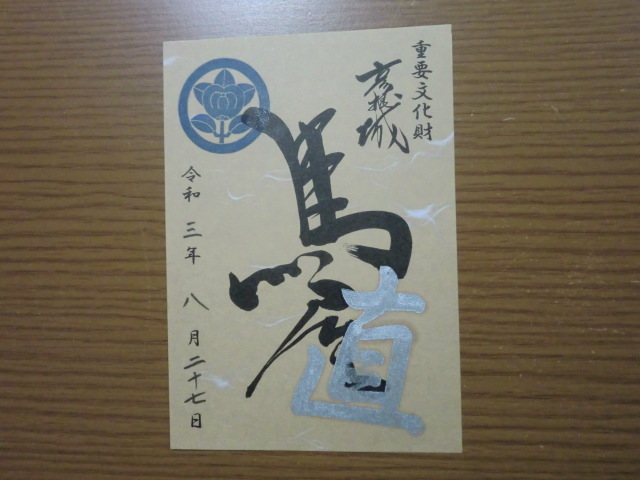 重要文化財
彦根城
馬屋
直
令和三年八月二十七日